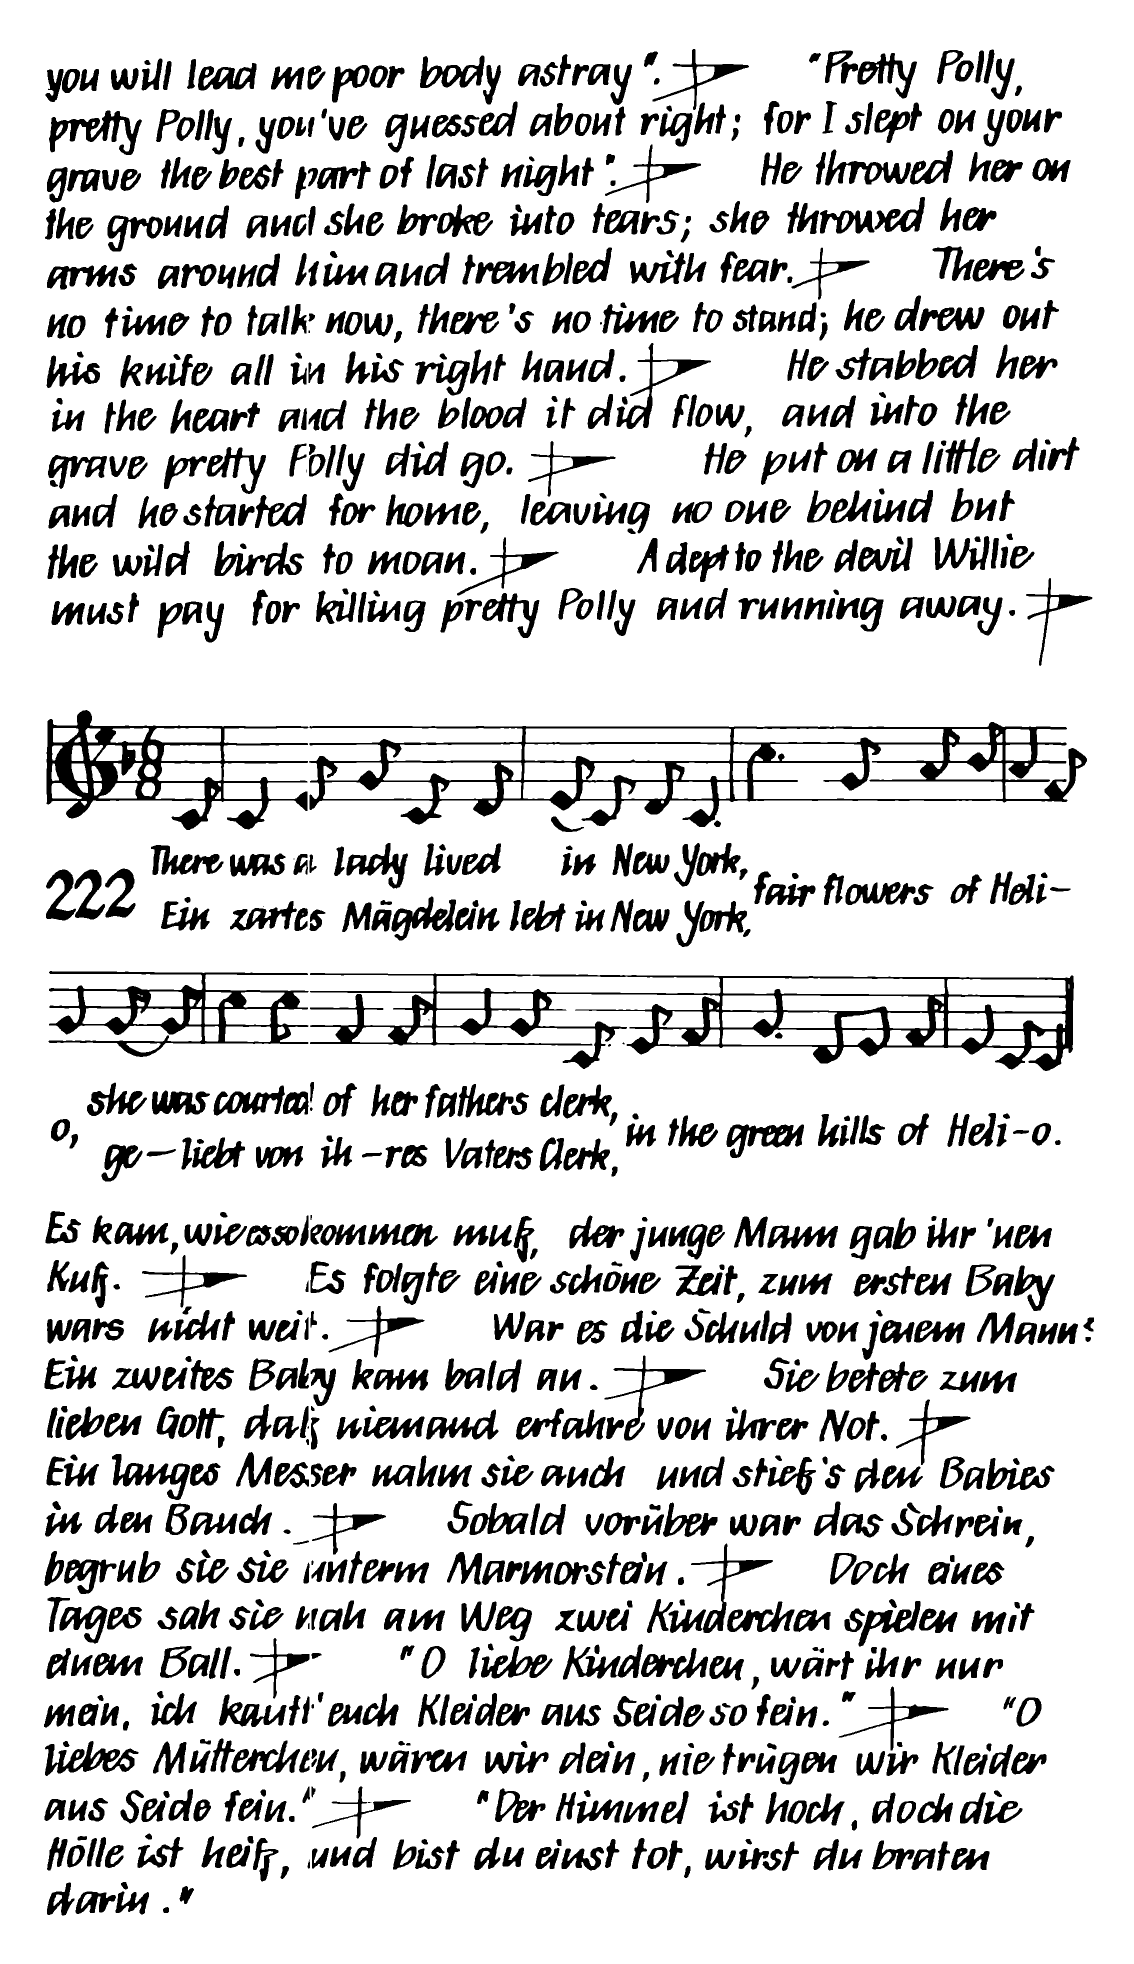 you will lead me poor body astray". "Pretty Polly,
pretty Polly, you've guessed about right; for I slept on your
grave the best part of last night". He throwed her on
the ground and she broke into tears; she throwed her
arms around him and trembled with fear. There's
no time to talk now, there's no time to stand; he drew out
his knife all in his right hand. He stabbed her
in the heart and the blood it did flow, and into the
grave pretty Polly did go. He put on a little dirt
and he started for home, leaving no one behind but
the wild birds to moan. A dept to the devil Willie
must pay for killing pretty Polly and running away.
6
8
222
There was a lady lived in New York,
Ein zartes Mägdelein lebt in New York,
fair flowers of Heli-
o,
she was courted of her fathers clerk,
ge-liebt von ih-res Vaters Clerk,
in the green hills of Heli-o.
Es kam, wie es so kommen muß, der junge Mann gab ihr 'nen
Kuß. Es folgte eine schöne Zeit, zum ersten Baby
wars nicht weit. War es die Schuld von jenem Mann?
Ein zweites Baby kam bald an. Sie betete zum
lieben Gott, daß niemand erfahre von ihrer Not.
Ein langes Messer nahm sie auch und stieß's den Babies
in den Bauch. Sobald vorüber war das Schrein,
begrub sie sie unterm Marmorstein. Doch eines
Tages sah sie nah am Weg zwei Kinderchen spielen mit
einem Ball. "O liebe Kinderchen, wärt ihr nur
mein, ich kauft' euch Kleider aus Seide so fein." "O
liebes Mütterchen, wären wir dein, nie trügen wir Kleider
aus Seide fein." "Der Himmel ist hoch, doch die
Hölle ist heiß, und bist du einst tot, wirst du braten
darin."